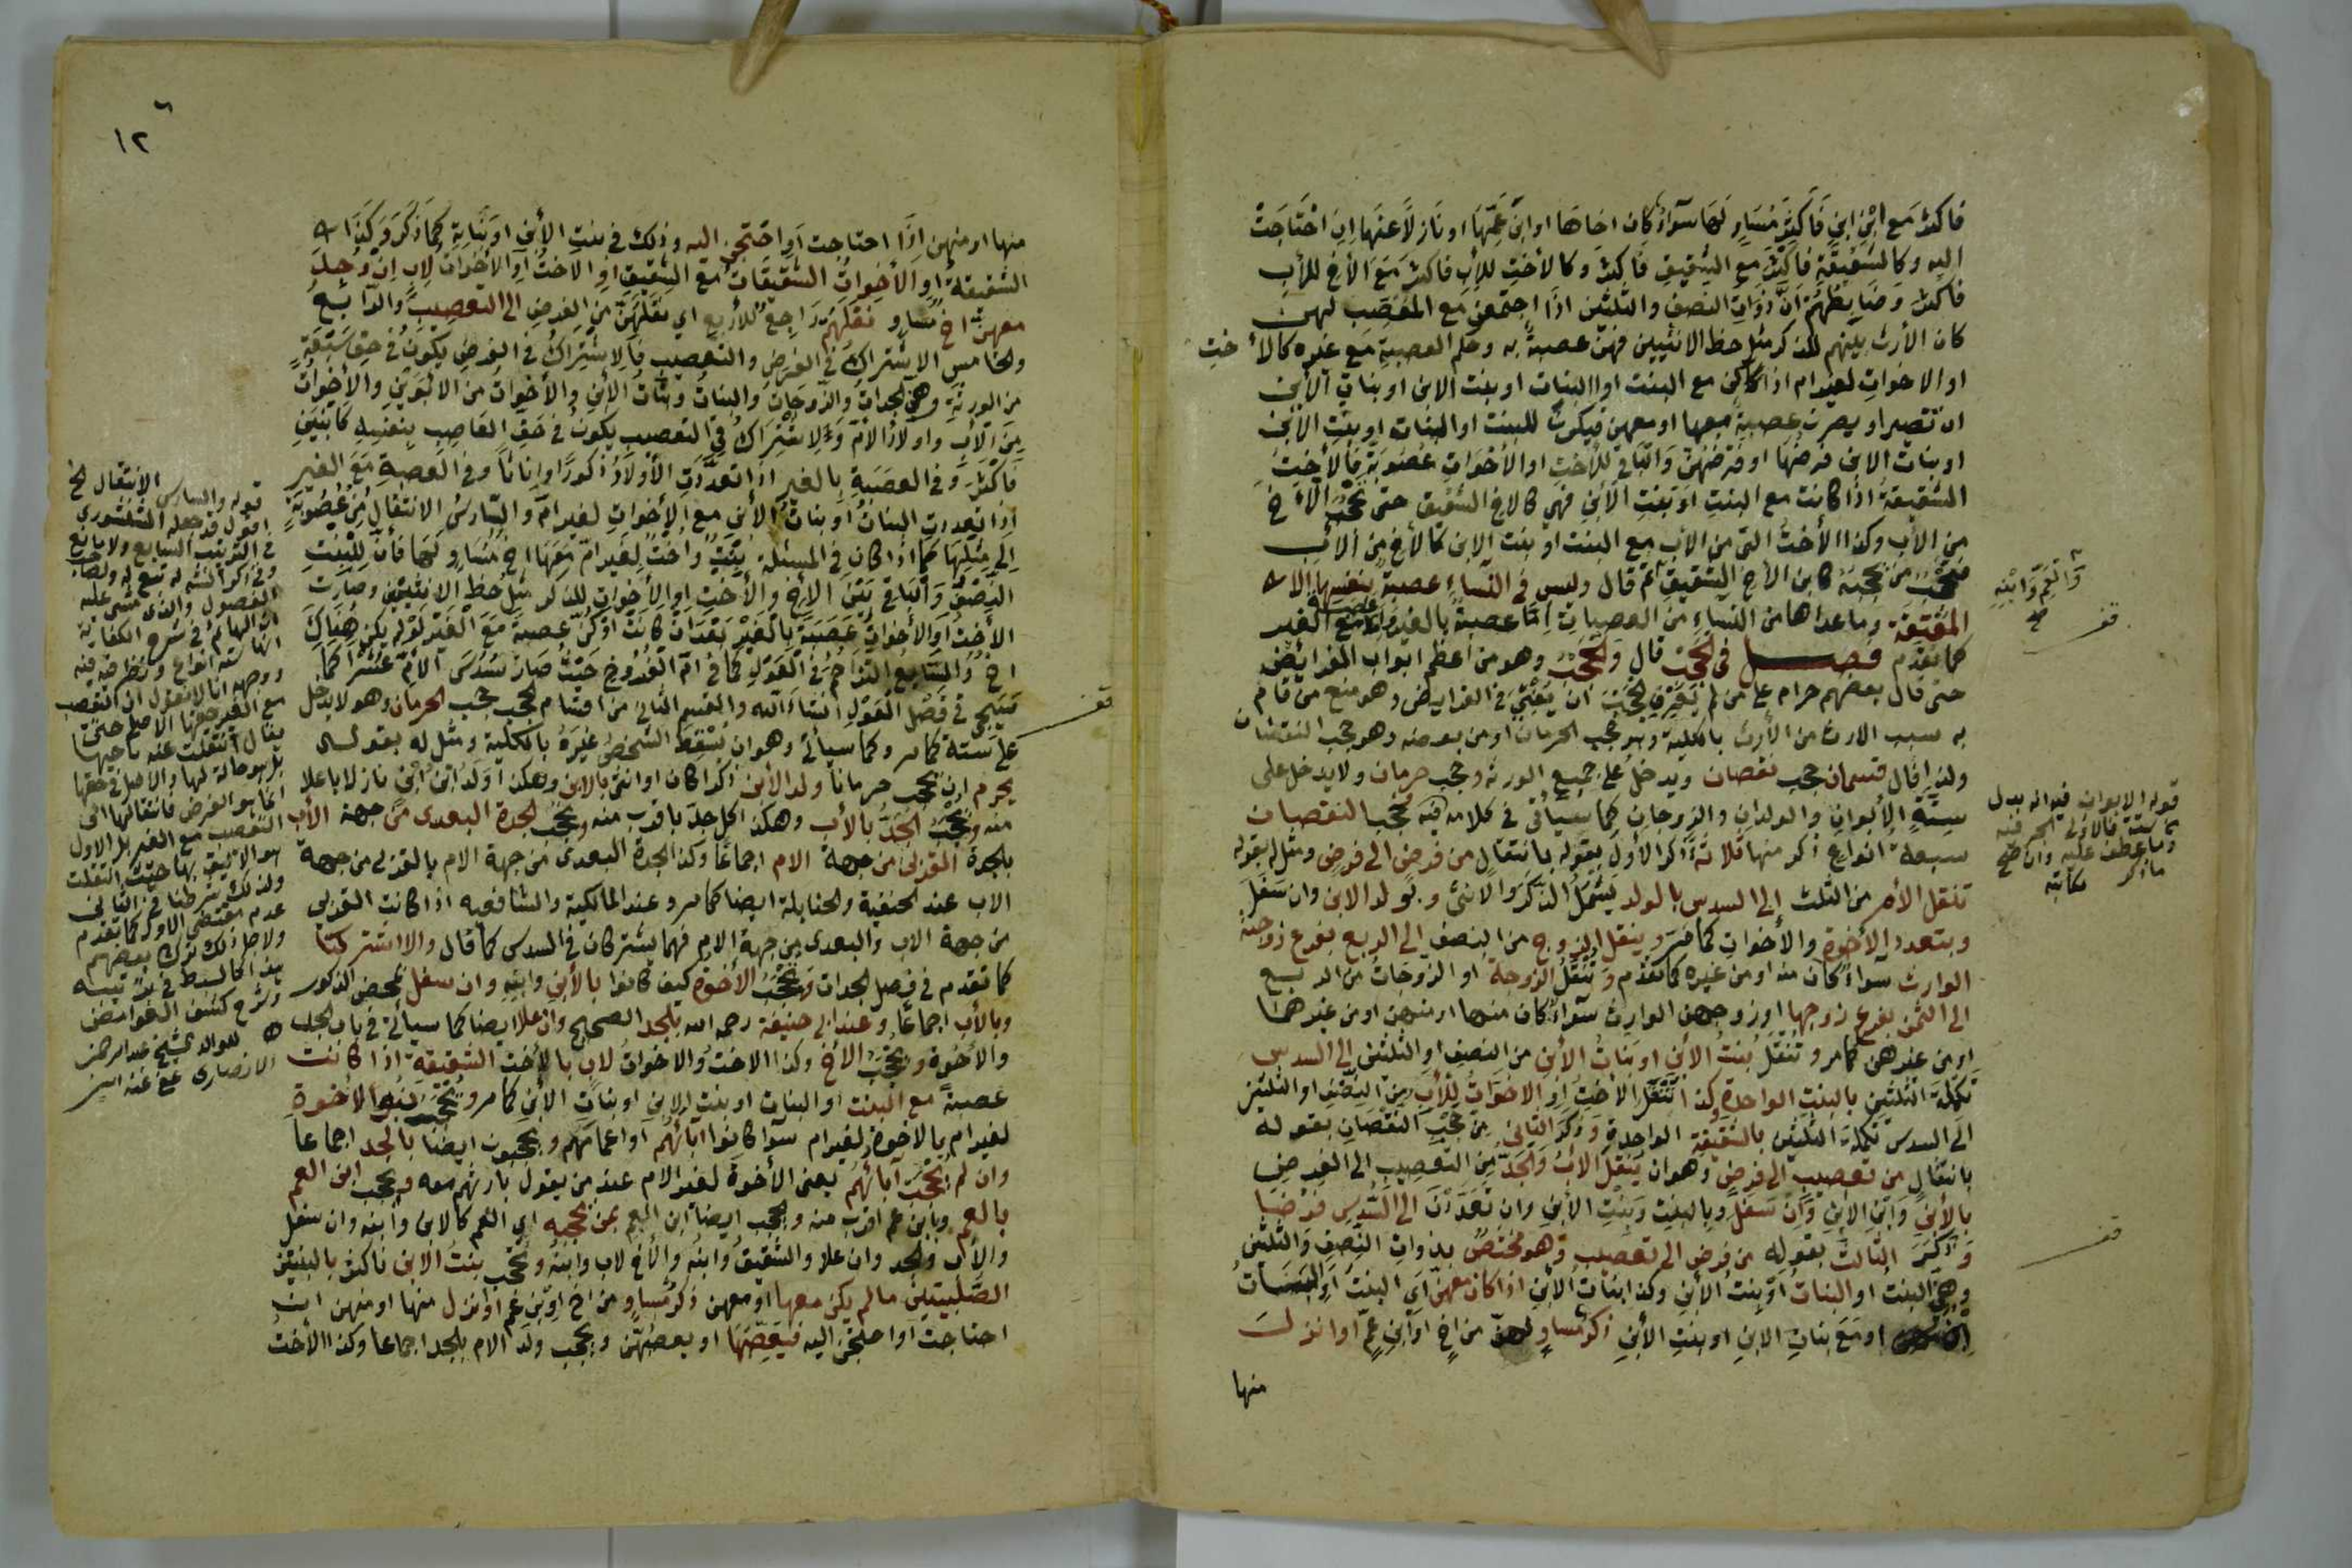 فاكثر مع ابن ابن فاكثر مساو لها سواء كان اخاها او ابن عمها او نازلا عنها ان احتاجت
اليه وكالشقيقة فاكثر مع الشقيق فاكثر وكالأخت للأب فاكثر مع الأخ للأب
فاكثر وضابطهم ان ذوات النصف والثلثين اذا اجتمعن مع المعصب لهن
كان الأرث بينهم للذكر مثل حظ الانثيين فهن عصبة به وحكم العصبة مع غيره كالأخت
او الاخوات لغير ام اذا كن مع البنت او البنات او بنت الابن او بنات الأبن
ان تصير او يصرن عصبة معها او معهن فيكون للبنت او البنات او بنت الأبن
او بنات الابن فرضها او فرضهن والباقي للأخت او الأخوات عصوبة فالأخت
الشقيقة اذا كانت مع البنت او بنت الأبن فهي كالاخ الشقيق حتى تحجب الأخ
من الأب وكذا الأخت التي من الأب مع البنت او بنت الابن كالأخ من الأب
فتحجب من يحجبه كابن الأخ الشقيق ثم قال وليس في النساء عصبة بنفسها الا
المعتقة وما عداها من النساء من العصبات اما عصبة بالغير واما عصبة مع الغير
كما تقدم فصل في الحجب قال والحجب وهو من اعظم ابواب الفرائض
حتى قال بعضهم حرام على من لم يعرف الحجب ان يفتي في الفرايض وهو منع من قام
به سبب الارث من الأرث بالكلية وهو حجب الحرمان او من بعضه وهو حجب النقصان
ولذا قال قسمان حجب نقصان ويدخل على جميع الورثة وحجب حرمان ولا يدخل على
ستة الأبوان والولدان والزوجان كما سيأتي في كلامه فيه فحجب النقصان
سبعة انواع ذكر منها ثلاثة ذكر الأول بقوله بانتقال من فرض الى فرض ومثل له بقوله
تنقل الأم من الثلث الى السدس بالولد يشمل الذكر والانثى وبولد الابن وان سفل
وبتعدد الأخوة والأخوات كما مر وينقل الزوج من النصف الى الربع بفرع زوجته
الوارث سواء كان منه او من غيره كما تقدم وتنقل الزوجة او الزوجات من الربع
الى الثمن بفرع زوجها او زوجهن الوارث سواء كان منها او منهن او من غيرها
او من غيرهن كما مر وتنقل بنت الأبن او بنات الأبن من النصف او الثلثين الى السدس
تكملة الثلثين بالبنت الواحدة وكذا تنقل الأخت او الاخوات للأب من النصف او الثلثين
الى السدس تكملة الثلثين بالشقيقة الواحدة وذكر الثاني من حجب النقصان بقوله
بانتقال من تعصيب الى فرض وهو ان ينقل الأب والجد من التعصيب الى الفرض
بالأبن وابن الابن وان سفل وبالبنت وبنت الأبن وان تعددن الى السدس فرضا
وذكر الثالث بقوله من فرض الى تعصيب وهو مختص بذوات النصف والثلثين
وهي البنت او البنات او بنت الأبن وكذا بنات الأبن اذا كان معهن اي البنت او البنات
او مع بنات الابن او بنت الأبن ذكر مساو لهن من اخ او ابن عم او انزل
منها
والعم وابنه
قف
قوله الابوان فيه انه بدل
من ستة فالاولى الجر فيه
وما عطف عليه وان صح
ما ذكر كاتبه
قف
١٢
منها او منهن اذا احتاجت او احتجن اليه وذلك في بنت الأبن او بناته كما ذكر وكذا
الشقيقة او الأخوات الشقيقات مع الشقيق او الأخت او الأخوات لاب ان وجد
معهن اخ مساو فنقلهم راجع للأربع اي نقلهن من الفرض الى التعصيب والرابع
والخامس الاشتراك في الفرض والتعصيب فالاشتراك في الفرض يكون في حق سبعة
من الورثة وهي الجدات والزوجات والبنات وبنات الأبن والأخوات من الأبوين والأخوات
من الأب واولاد الأم والاشتراك في التعصيب يكون في حق العاصب بنفسه كابنين
فأكثر وفي العصبة بالغير اذا تعددت الأولاد ذكورا واناثا وفي العصبة مع الغير
اذا تعددت البنات او بنات الأبن مع الأخوات لغير ام والسادس الانتقال من عصوبة
الى مثلها كما اذا كان في المسئلة بنت واخت لغير ام معها اخ مساو لها فأن للبنت
النصف والباقي بين الأخ والأخت او الأخوات للذكر مثل حظ الانثيين وصارت
الأخت او الأخوات عصبة بالغير بعد ان كانت او كن عصبة مع الغير لو لم يكن هناك
اخ والسابع التزاحم في العول كما في ام الفروخ حيث صار سدس الأم عشرا كما
سيجيء في فصل العول انشاء الله والقسم الثاني من اقسام الحجب حجب الحرمان وهو لا يدخل
على ستة كما مر وكما سيأتي وهو ان يسقط الشخص غيره بالكلية ومثل له بقوله
يحرم اي يحجب حرمانا ولد الأبن ذكرا كان او انثى بالابن وهكذا ولد ابن ابن نازل باعلا
منه ويحجب الجد بالأب وهكذا كل جد باقرب منه وتحجب الجدة البعدى من جهة الأب
بالجدة القربى من جهة الام اجماعا وكذا الجدة البعدى من جهة الام بالقربى من جهة
الاب عند الحنفية والحنابلة ايضا كما مر وعند المالكية والشافعيه اذا كانت القربى
من جهة الاب والبعدى من جهة الام فهما يشتركان في السدس كما قال والا اشتركتا
كما تقدم في فصل الجدات وتحجب الأخوة كيف كانوا بالأبن وابنه وان سفل بمحض الذكور
وبالأب اجماعا وعند ابي حنيفة رحمه الله بالجد الصحيح وان علا ايضا كما سيأتي في باب الجد
والأخوة ويحجب الأخ وكذا الاخت والاخوات لاب بالأخت الشقيقة اذا كانت
عصبة مع البنت او البنات او بنت الابن او بنات الأبن كما مر ويحجب بنو الأخوة
لغير ام بالاخوة لغير ام سوا كانوا آبائهم او اعمامهم ويحجبون ايضا بالجد اجماعا
وان لم يحجب آبائهم يعني الأخوة لغير الام عند من يقول بارثهم معه ويحجب ابن العم
بالعم وبابن عم اقرب منه ويحجب ايضا ابن العم بمن يحجبه اي العم كالابن وابنه وان سفل
والأب والجد وان علا والشقيق وابنه والأخ لاب وابنه وتحجب بنت الابن فاكثر بالبنتين
الصلبيتين ما لم يكن معها او معهن ذكر مساو من اخ او ابن عم او انزل منها او منهن ان
احتاجت او احتجن اليه فيعصبها او يعصبهن ويحجب ولد الام بالجد اجماعا وكذا الأخت
قوله والسادس الانتقال الخ
اقول قد جعله الشنشوري
في الترتيب السابع ولا مانع
الفصول والذي مشى عليه
ابن الهائم في شرح الكفاية
انها ستة انواع ونظر فيه
ووجهه انا لا نقول ان التعصيب
مع الغير حقها الاصلي حتى
يقال انتقلت عنه
بل هو حالة لها والاصل في حقها
انما هو الفرض فانتقالها الى
التعصيب مع الغير بل الاول
ولذلك شرطنا في الثاني
عدم مقتضى الاول كما تقدم
ولاجل ذلك ترك بعضهم
هذا كالسبط في ترتيبه
وشرح كشف الغوامض
للوالد الشيخ عبد الرحمن
الانصاري عفي عنه
قف